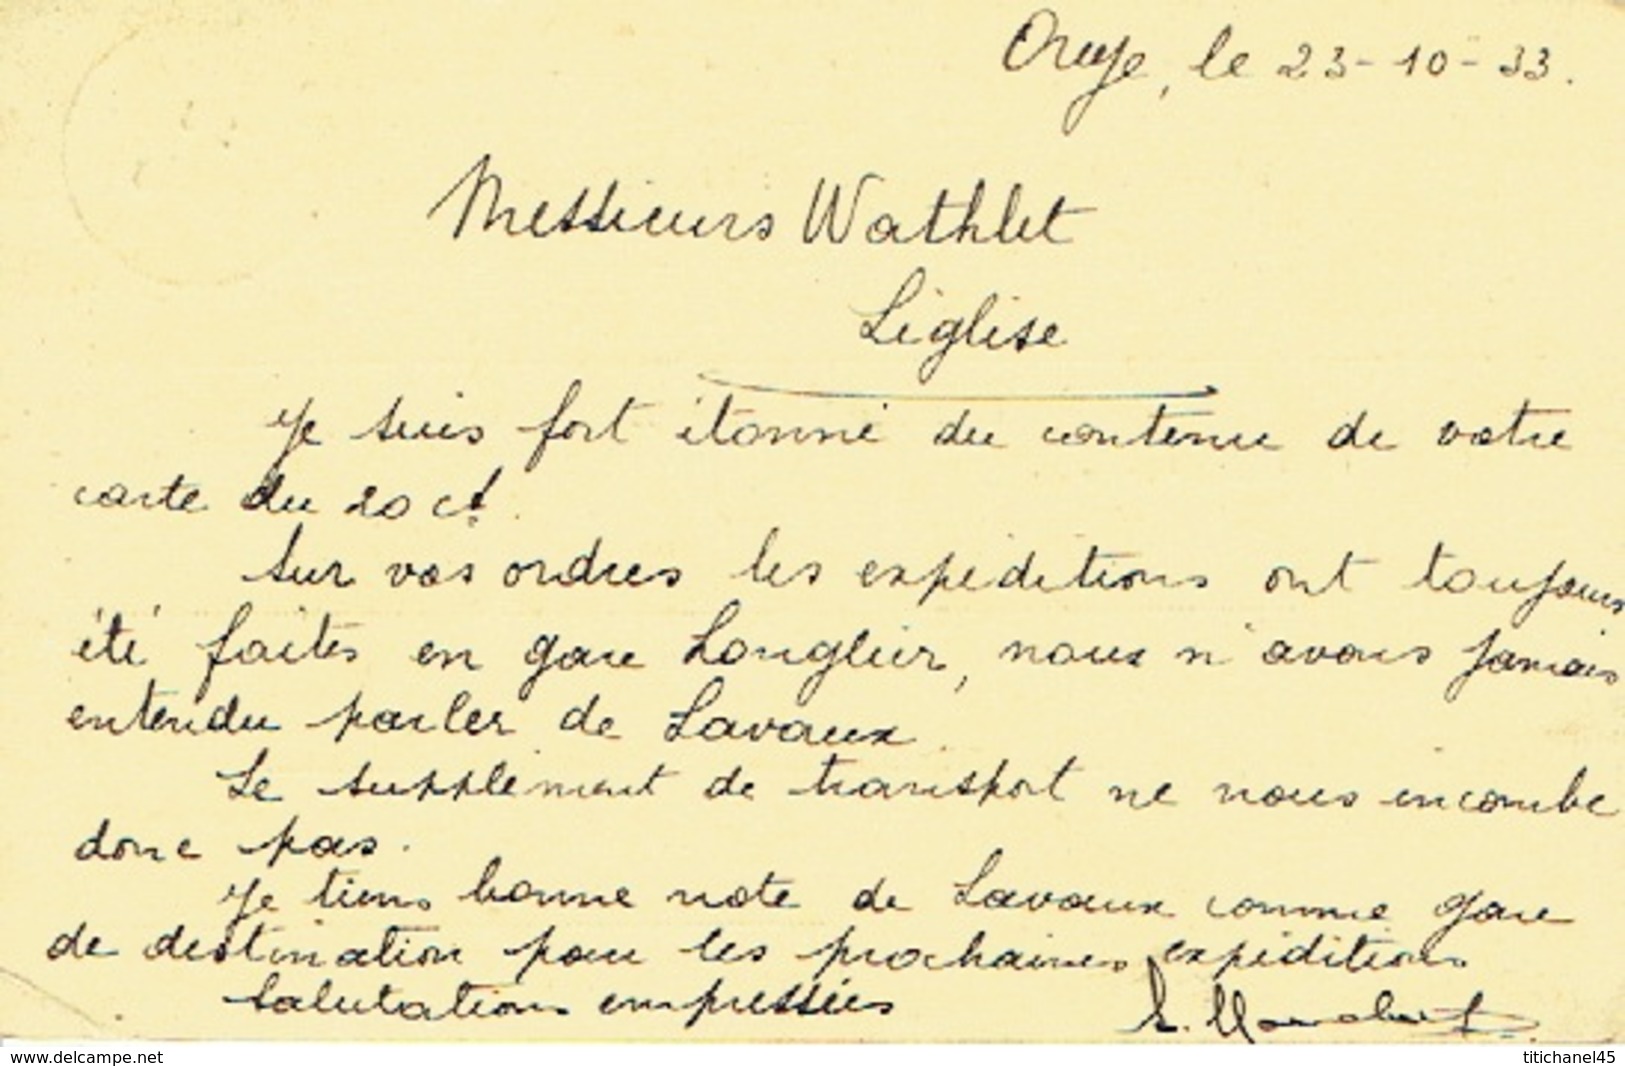 Oreye, le 23-10-33.
Messieurs Wathlet
Léglise
Je suis fort étonné du contenu de votre
carte du 20 ct.
Sur vos ordres les expéditions ont toujours
été faites en gare Longlier, nous n'avons jamais
entendu parler de Lavaux.
Le supplément de transport ne nous incombe
donc pas.
Je tiens bonne note de Lavaux comme gare
de destination pour les prochaines expéditions
Salutations empressées
www.delcampe.net
titichanel45